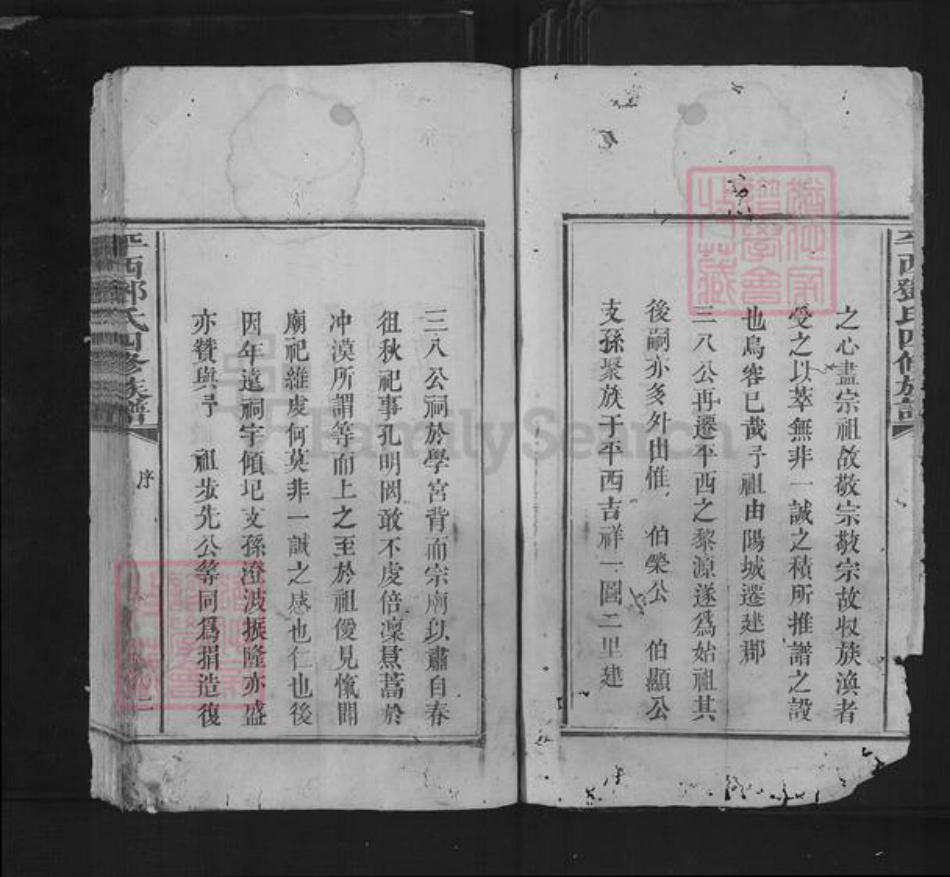 平西鄧氏四修族譜
之心盡宗祖故敬宗敬宗故収族渙者
受之以萃無非一誠之積所推譜之設
也烏容已哉予祖由陽城遷建鄀
三八公再遷平西之黎源遂爲始祖其
後嗣亦多外出惟 伯榮公 伯顯公
支孫聚族于平西吉祥一圖二里建
三八公祠於學宮背而宗廟以肅自春
徂秋祀事孔明罔敢不虔倍凜焄蒿於
冲漠所謂等而上之至於祖僾見愾聞
廟祀維虔何莫非一誠之感也仁也後
因年遠祠宇傾圮支孫澄波振隆亦盛
亦贊與予 祖步先公等同爲捐造復
平西鄧氏四修族譜
序
二
FamilySearch